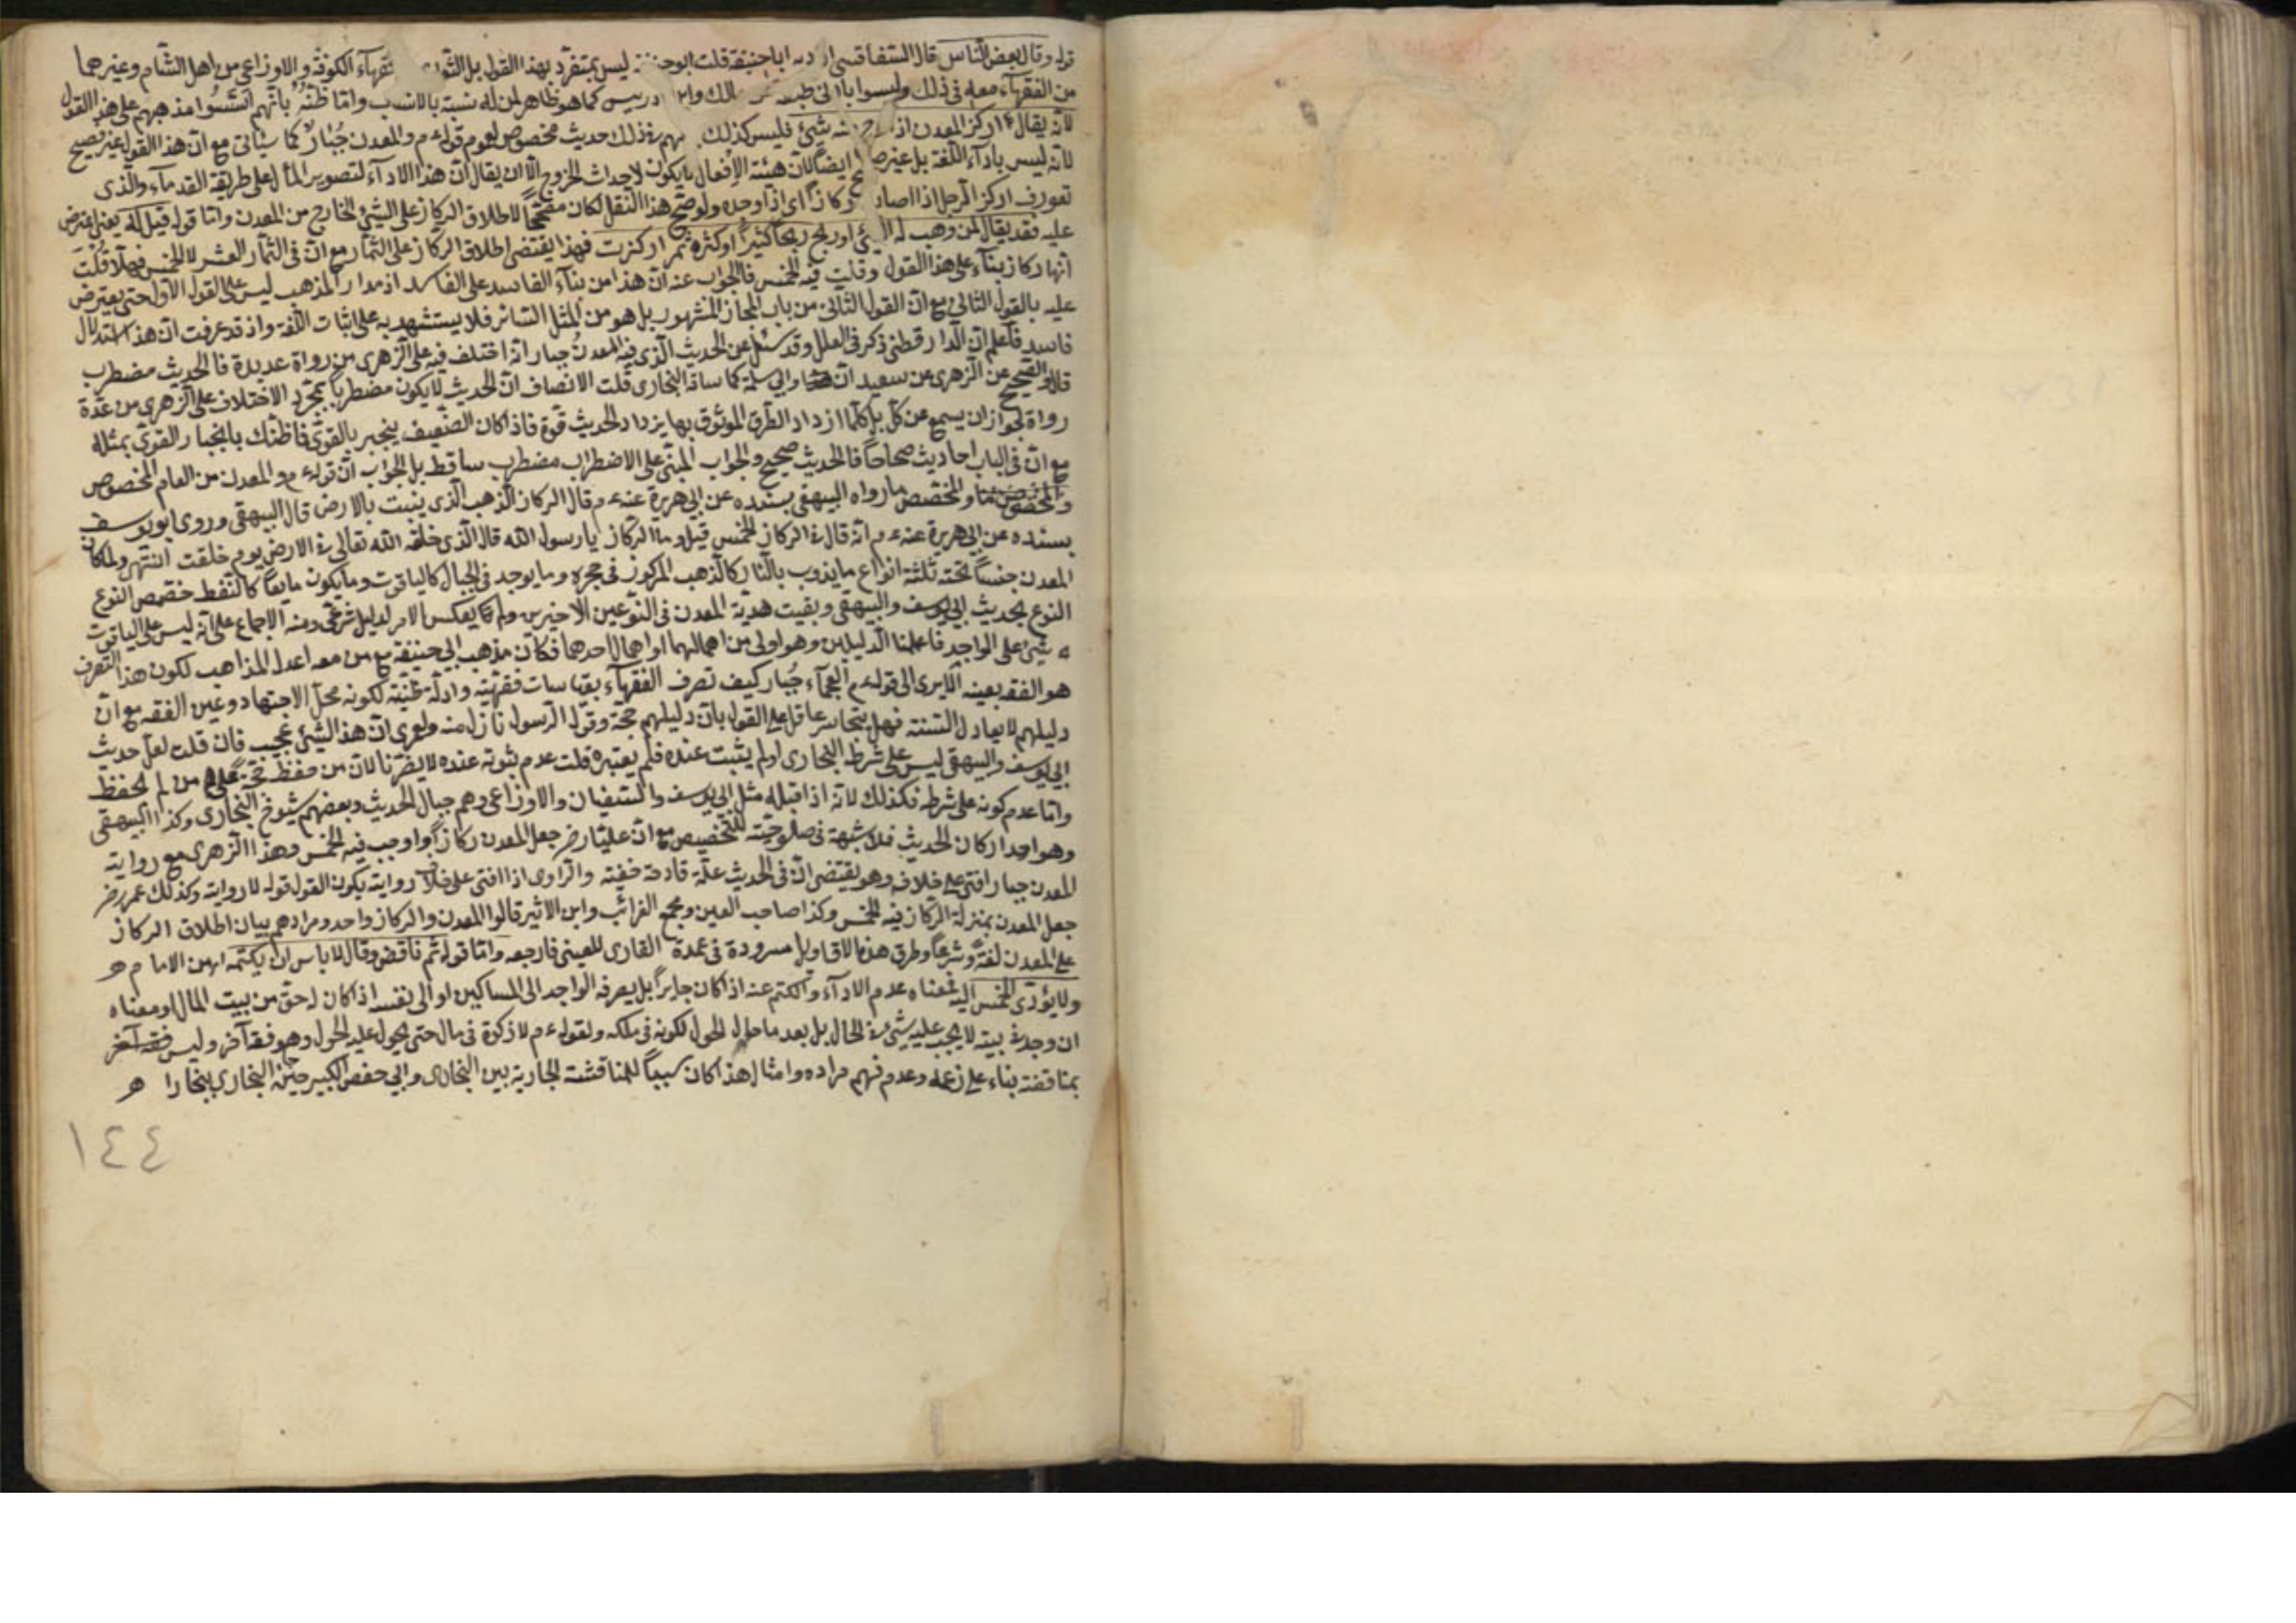 قوله وقال بعض الناس قال السفاقسي اباحنيفة قلت ليس بمتفرد بهذا القول بل الكوفة والاوزاعي من اهل الشام وغيرهما
من الفقهاء معه في ذلك وليسوا كما هو ظاهر لمن له نسبة بالانساب واما ظنه بانهم اسسوا مذهبهم على هذا القول
لانه يقال اركز المعدن اذا شيئ فليس كذلك ذلك حديث مخصوص لعموم قوله عم والمعدن جبار كما سيأتي مع ان هذا القول غير صحيح
لانه ليس باداء اللغة بل غير ايضا لان هيئة الافعال يكون لاحداث الخروج الا ان يقال ان هذا الاداء لتصوير المأل على طريقة القدماء والذي
تعورف اركز الرجل اذا اصاب ركازا اي اذا وجده ولو صح هذا النقل لكان مصححا لاطلاق الركاز على الشيئ الخارج من المعدن واما قوله قيل له يعني اعترض
عليه فقد يقال لمن وهب له الشيئ او ربح ربحا كثيرا او كثر ثمره اركزت فهذا يقتضي اطلاق الركاز على الثمار مع ان في الثمار العشر لا الخمس فهلا قلت
انها ركاز بناء على هذا القول وقلت فيه الخمس فالجواب عنه ان هذا من بناء الفاسد على الفاسد اذ مدار المذهب ليس على القول الاول حتى يعترض
عليه بالقول الثاني مع ان القول الثاني من باب المجاز المشهور بل هو من المثل السائر فلا يستشهد به على اثبات اللغة واذ قد عرفت ان هذا الاستدلال
فاسد فاعلم ان الدارقطني ذكر في العلل وقد سئل عن الحديث الذي فيه المعدن جبار انه اختلف فيه على الزهري من رواة عديدة فالحديث مضطرب
قال والصحيح عن الزهري عن سعيد وابي سلمة كما ساقه البخاري قلت الانصاف ان الحديث لا يكون مضطربا بمجرد الاختلاف على الزهري من عدة
رواة لجواز ان يسمع عن كل بل كلما ازداد الطرق الموثوق بها يزداد الحديث قوة فاذا كان الضعيف ينجبر بالقوي فما ظنك بانجبار القوي بمثله
مع ان في الباب احاديث صحاحا فالحديث صحيح والجواب المبني على الاضطراب مضطرب ساقط بل الجواب ان قوله عم والمعدن من العام المخصوص
والمخصص ما رواه البيهقي بسنده عن ابي هريرة عنه عم قال الركاز الذهب الذي ينبت بالارض قال البيهقي وروى ابو يوسف
بسنده عن ابي هريرة عنه عم انه قال في الركاز الخمس قيل وما الركاز يا رسول الله قال الذي خلقه الله تعالى في الارض يوم خلقت انتهى ولما كان
المعدن جنسا تحته ثلثة انواع ما يذوب بالنار كالذهب المركوز في حجره وما يوجد في الجبال كالياقوت وما يكون مايعا كالنفط خصص النوع
النوع بحديث ابي يوسف والبيهقي وبقيت هدية المعدن في النوعين الاخيرين ولم يعكس الامر لدليل شرعي ومنه الاجماع على انه ليس على الياقوت
شيئ على الواجد فاعملنا الدليلين وهو اولى من اهمالهما او اهمال احدهما فكان مذهب ابي حنيفة مع من معه اعدل المذاهب لكون هذا التصرف
هو الفقه بعينه الا يرى الى قوله عم العجماء جبار كيف تصرف الفقهاء بقياسات فقهية وادلة ظنية لكونه محل الاجتهاد وعين الفقه مع ان
دليلهم لا يعادل السنة فهل يتجاسر عاقل على القول بان دليلهم حجة وقول الرسول نازل منه ولعمري ان هذا الشيئ عجيب فان قلت لعل حديث
ابي يوسف والبيهقي ليس على شرط البخاري او لم يثبت عنده فلم يعتبره قلت عدم ثبوته عنده لا يضرنا لان من حفظ حجة على من لم يحفظ
واما عدم كونه على شرطه فكذلك لانه اذا قبله مثل ابي يوسف والسفيان والاوزاعي وهم جبال الحديث وبعضهم شيوخ البخاري وكذا البيهقي
وهو احد اركان الحديث فلا شبهة في صلوحيته للتخصيص مع ان عليا رضي جعل المعدن ركازا واوجب فيه الخمس وهذا الزهري مع روايته
المعدن جبار افتى على خلافه وهو يقتضي ان في الحديث علة قادحة خفية والراوي اذا افتى على خلاف روايته يكون القول قوله لا روايته وكذلك عمر رضي
جعل المعدن بمنزلة الركاز فيه الخمس وكذا صاحب العين ومجمع الغرائب وابن الاثير قالوا المعدن والركاز واحد ومرادهم بيان اطلاق الركاز
على المعدن لغة وشرعا وطرق هذه الاقاويل مسرودة في عمدة القاري للعيني فارجعه واما قوله ثم ناقض وقال لا باس ان يكتمه اي من الامام
ولا يؤدى الخمس اليه فمعناه عدم الاداء والكتم عنه اذا كان جايرا بل يصرفه الواجد الى المساكين او الى نفسه اذا كان له حق من بيت المال او معناه
ان وجد في بيته لا يجب عليه شيئ في الحال بل بعد ما حال الحول لكونه في ملكه ولقوله عم لا زكوة في مال حتى يحول عليه الحول وهو فقه آخر وليس
بمناقضة بناء على زعمه وعدم فهم مراده وامثال هذا كان سببا للمناقشة الجارية بين البخاري وابي حفص الكبير البخاري ببخارا
١٤٤